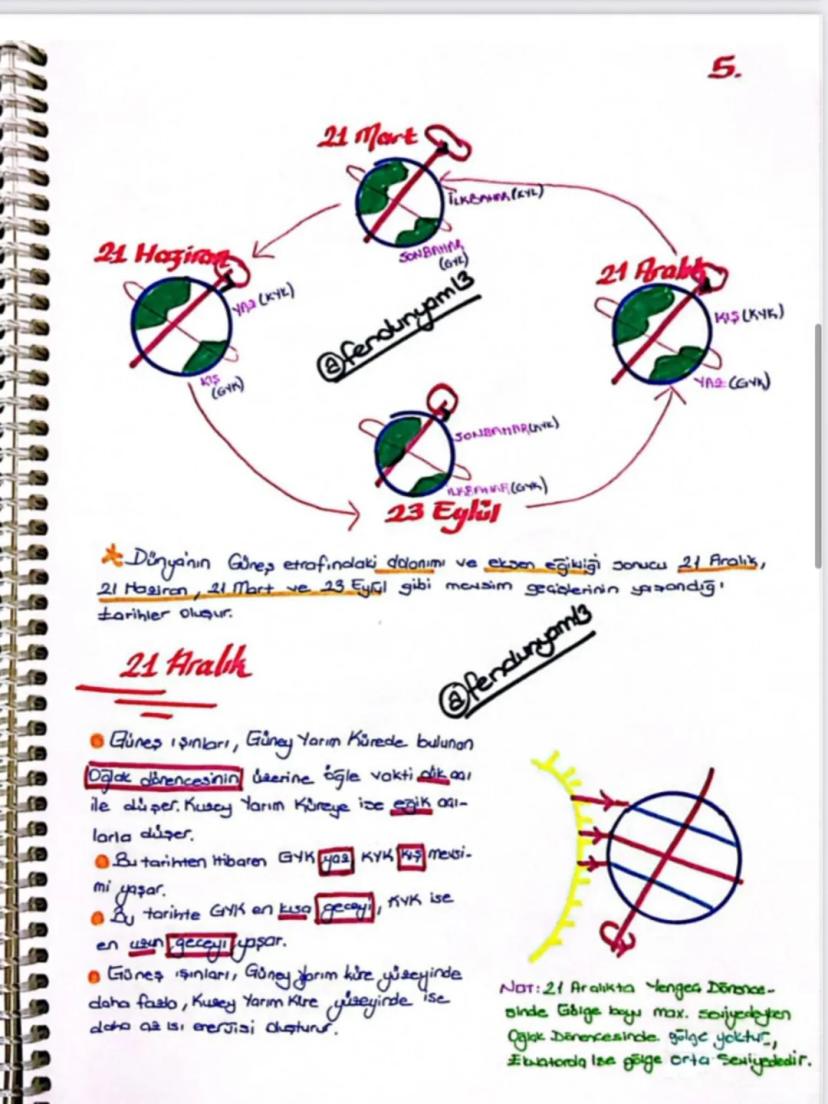 5.
21 Mart
İLKBAHAR (KYK)
SONBAHAR
(GYK)
21 Haziran
YAZ (KYK)
KIŞ
(GYK)
21 Aralık
KIŞ (KYK)
YAZ (GYK)
@fendunyam13
SONBAHAR (KYK)
İLKBAHAR (GYK)
23 Eylül
Dünya'nın Güneş etrafındaki dolanımı ve eksen eğikliği sonucu 21 Aralık,
21 Haziran, 21 Mart ve 23 Eylül gibi mevsim geçişlerinin yaşandığı
tarihler oluşur.
@fendunyam13
21 Aralık
Güneş ışınları, Güney Yarım Kürede bulunan
Oğlak dönencesinin üzerine öğle vakti dik açı
ile düşer. Kuzey Yarım Küreye ise eğik açı-
larla düşer.
Bu tarihten itibaren GYK yaz KYK kış mevsi-
mi yaşar.
Bu tarihte GYK en kısa geceyi, KYK ise
en uzun geceyi yaşar.
Güneş ışınları, Güney Yarım küre yüzeyinde
daha fazla, Kuzey Yarım Küre yüzeyinde ise
daha az ısı enerjisi oluşturur.
NOT: 21 Aralıkta Yengeç Dönence-
sinde Gölge boyu max. seviyedeyken
Oğlak Dönencesinde gölge yoktur,
Ekvatorda ise gölge orta Seviyededir.